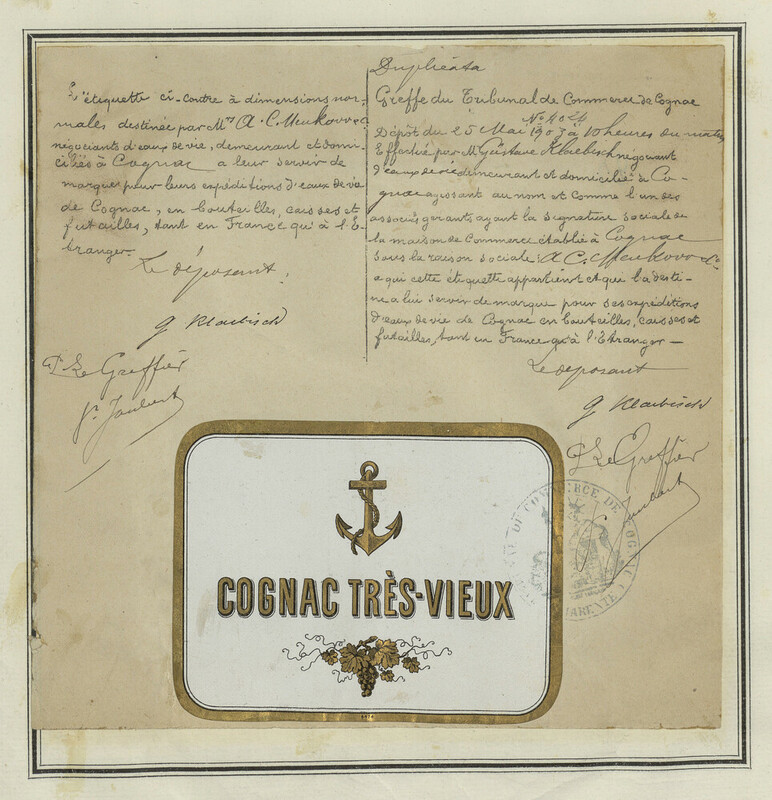 L'étiquette ci-contre à dimensions nor-
males destinée par Mrs A. C. Meukow & Co
négociants d'eaux de vie, demeurant et domi-
ciliés à Cognac a leur servir de
marque pour leurs expéditions d'eaux de vie
de Cognac, en bouteilles, caisses et
futailles, tant en France qu'à l'É-
tranger.
Le déposant,
G Klaebisch
P. Le Greffier
Duplicata
Greffe du Tribunal de Commerce de Cognac
No 4024
Dépôt du 25 Mai 1907 à 10 heures du matin
Effectué par M. Gustave Klaebisch négociant
d'eaux de vie demeurant et domicilié à Co-
gnac agissant au nom et comme l'un des
associés gerants ayant la signature sociale de
la maison de Commerce établie à Cognac
sous la raison sociale: A C. Meukow & Co
a qui cette étiquette appartient et qui l'a desti-
née a lui servir de marque pour ses expéditions
d'eaux de vie de Cognac en bouteilles, caisses et
futailles, tant en France qu'à l'Etranger —
Le déposant
G Klaebisch
P. Le Greffier
COMMERCE DE COGNAC
CHARENTE
COGNAC TRÈS-VIEUX